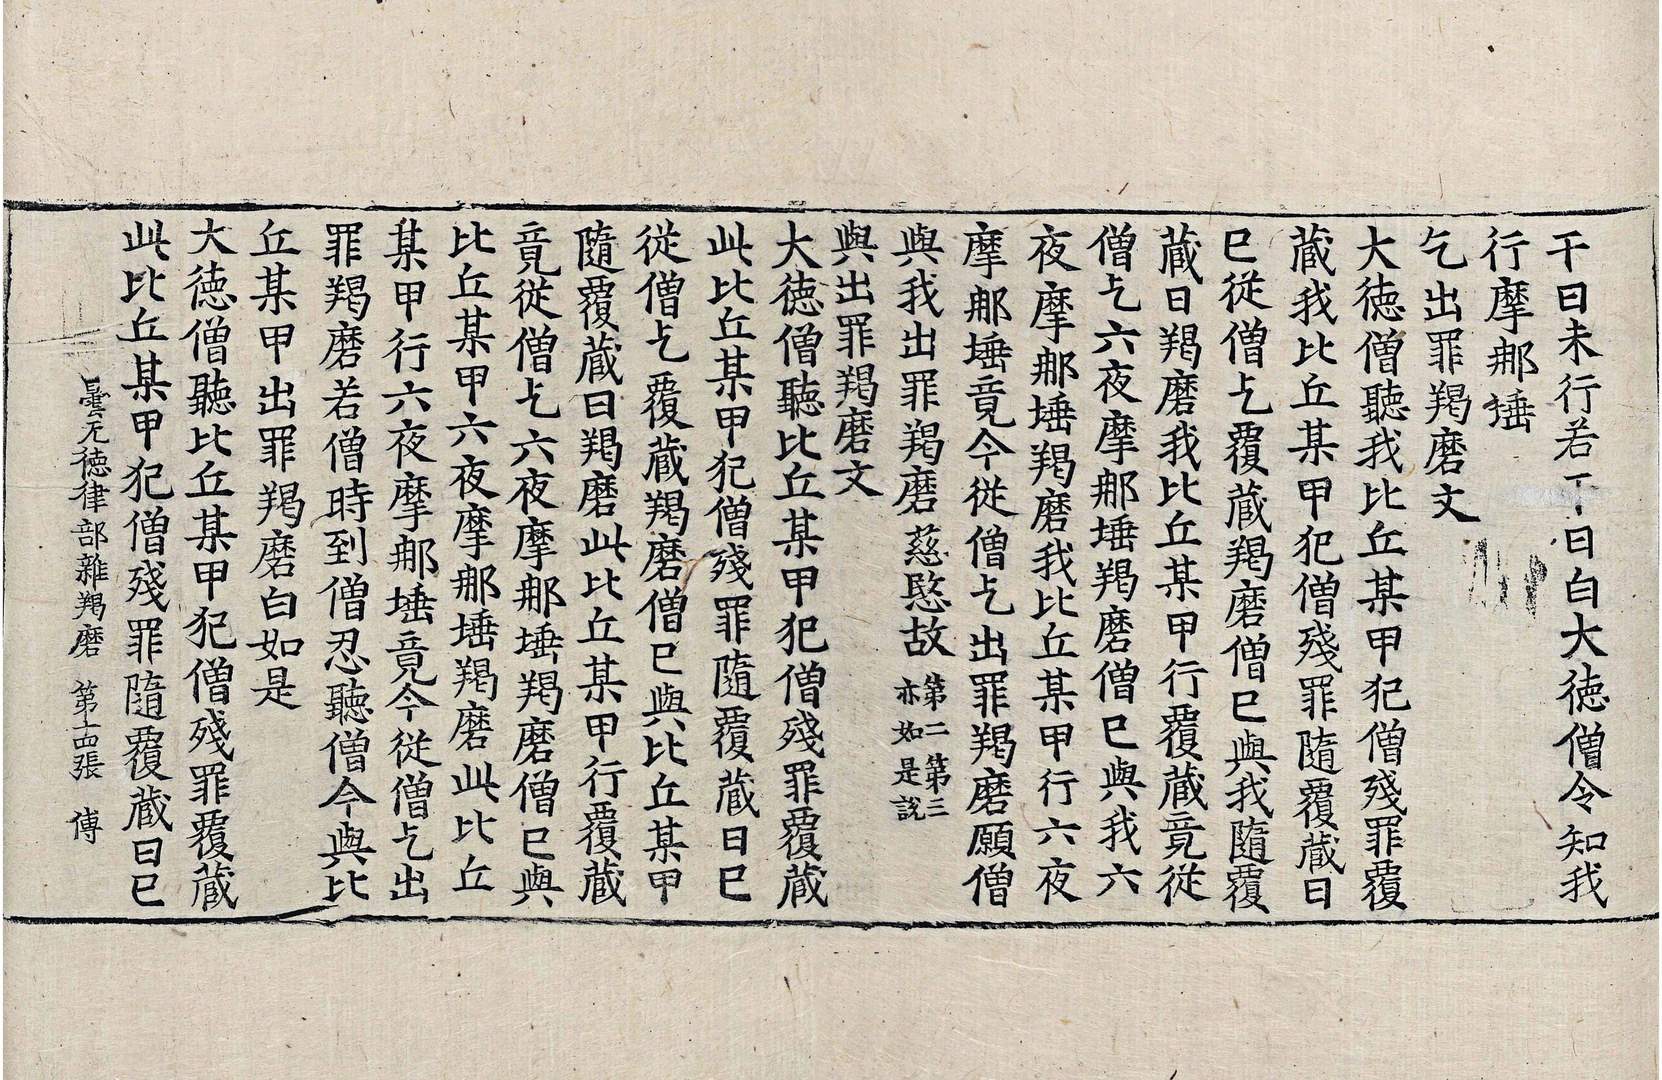 干日未行若干日白大徳僧令知我
行摩那埵
乞出罪羯磨文
大徳僧聽我比丘某甲犯僧殘罪覆
蔵我比丘某甲犯僧殘罪隨覆蔵日
巳從僧乞覆蔵羯磨僧巳與我隨覆
蔵日羯磨我比丘某甲行覆蔵竟從
僧乞六夜摩那埵羯磨僧巳與我六
夜摩那埵羯磨我比丘某甲行六夜
摩那埵竟今從僧乞出罪羯磨願僧
與我出罪羯磨慈愍故第二第三亦如是說
與出罪羯磨文
大徳僧聽比丘某甲犯僧殘罪覆蔵
此比丘某甲犯僧殘罪隨覆蔵日巳
從僧乞覆蔵羯磨僧巳與比丘某甲
隨覆蔵日羯磨此比丘某甲行覆蔵
竟從僧乞六夜摩那埵羯磨僧巳與
比丘某甲六夜摩那埵羯磨此比丘
某甲行六夜摩那埵竟今從僧乞出
罪羯磨若僧時到僧忍聽僧今與比
丘某甲出罪羯磨白如是
大徳僧聽比丘某甲犯僧殘罪覆蔵
此比丘某甲犯僧殘罪隨覆蔵日巳
曇无徳律部雜羯磨 第十四張 傅